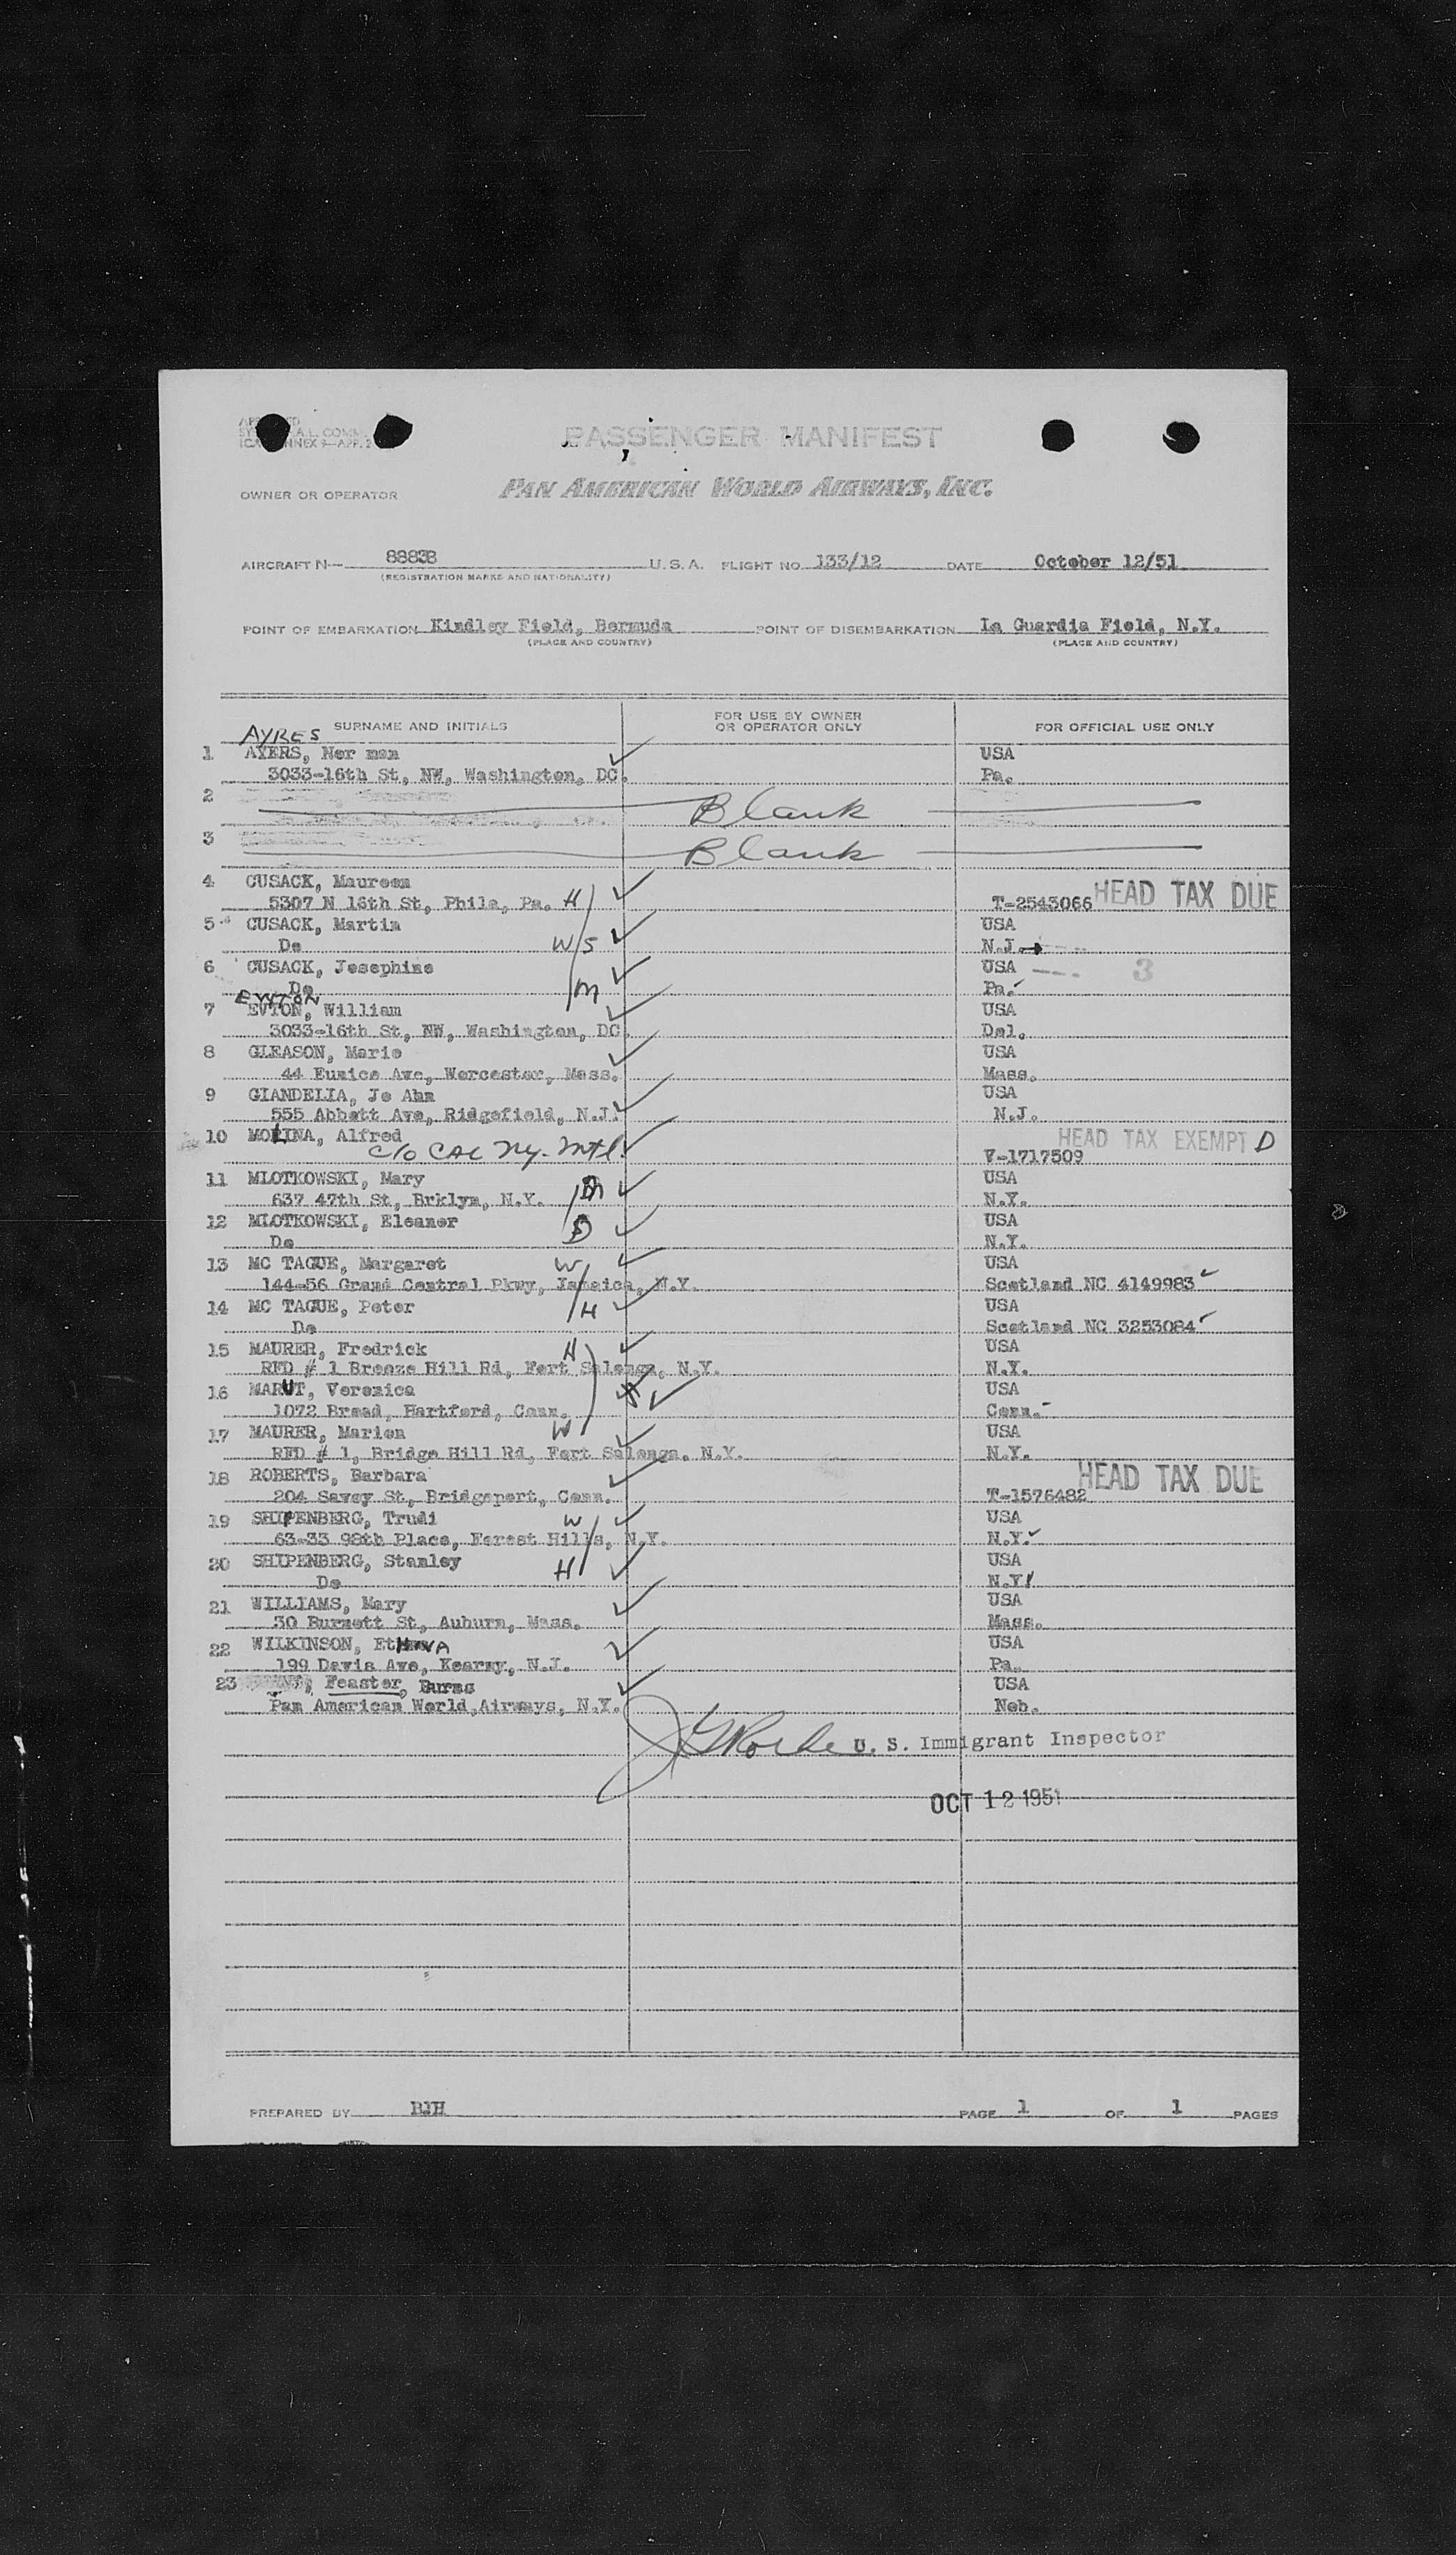 PASSENGER MANIFEST
OWNER OR OPERATOR PAN AMERICAN WORLD AIRWAYS, INC.
AIRCRAFT N- 88838 U.S.A. FLIGHT NO. 133/12 DATE October 12/51
(REGISTRATION MARKS AND NATIONALITY)
POINT OF EMBARKATION Kindley Field, Bermuda POINT OF DISEMBARKATION La Guardia Field, N.Y.
(PLACE AND COUNTRY) (PLACE AND COUNTRY)
SURNAME AND INITIALS FOR USE BY OWNER OR OPERATOR ONLY FOR OFFICIAL USE ONLY
AYRES
1 AYERS, Nor man USA
3033-16th St, NW, Washington, DC. Pa.
2 Blank
3 Blank
4 CUSACK, Maureen HEAD TAX DUE
5307 N 16th St, Phila, Pa. H T-2543066
5 CUSACK, Martin USA
Do W/S N.J.
6 CUSACK, Josephine USA 3
Do M Pa.
EWTON
7 EVTON, William USA
3033-16th St, NW, Washington, DC. Del.
8 GLEASON, Marie USA
44 Eunice Ave, Worcester, Mass. Mass.
9 GIANDELIA, Jo Ann USA
555 Abbott Ave, Ridgefield, N.J. N.J.
10 MOLINA, Alfred HEAD TAX EXEMPT D
c/o CAL Ny. Mtl. V-1717509
11 MLOTKOWSKI, Mary USA
637 47th St, Brklyn, N.Y. M N.Y.
12 MLOTKOWSKI, Eleanor D USA
Do N.Y.
13 MC TAGUE, Margaret W USA
144-56 Grand Central Pkwy, Jamaica, N.Y. Scotland NC 4149983
14 MC TAGUE, Peter H USA
Do Scotland NC 3253084
15 MAURER, Fredrick H USA
RFD # 1 Breeze Hill Rd, Fort Salonga, N.Y. N.Y.
16 MARUT, Veronica USA
1072 Broad, Hartford, Conn. Conn.
17 MAURER, Marion W USA
RFD # 1, Bridge Hill Rd, Fort Salonga, N.Y. N.Y.
18 ROBERTS, Barbara HEAD TAX DUE
204 Savoy St, Bridgeport, Conn. T-1576482
19 SHIPENBERG, Trudi W USA
63-33 98th Place, Forest Hills, N.Y. N.Y.
20 SHIPENBERG, Stanley H USA
Do N.Y.
21 WILLIAMS, Mary USA
30 Burnett St, Auburn, Mass. Mass.
22 WILKINSON, USA
199 Davis Ave, Kearny, N.J. Pa.
23 Feaster, Burns USA
Pan American World Airways, N.Y. Neb.
U. S. Immigrant Inspector
OCT 12 1951
PREPARED BY BJH PAGE 1 OF 1 PAGES